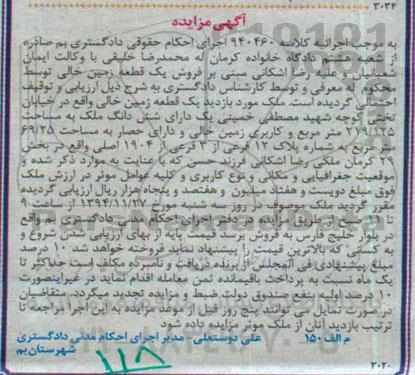 ۳۰۳۴
آگهی مزایده
به موجب اجرائیه کلاسه ۹۴۰۴۶۰ اجرای احکام حقوقی دادگستری بم صادره
از شعبه هشتم دادگاه خانواده کرمان له محمدرضا خلیقی با وکالت ایمان
شعبانیان و علیه رضا اشکانی مبنی بر فروش یک قطعه زمین خالی توسط
محکوم له معرفی و توسط کارشناس دادگستری به شرح ذیل ارزیابی و توقیف
اجتمالی گردیده است. ملک مورد بازدید یک قطعه زمین خالی واقع در خیابان
تختی کوچه شهید مصطفی خمینی یک دارای شش دانگ ملک به مساحت
۲۱۹/۲۲۵ متر مربع و کاربری زمین خالی و دارای حصار به مساحت ۶۹/۲۵
متر مربع به شماره پلاک ۱۲ فرعی از ۳ فرعی از ۱۹۰۴ اصلی واقع در بخش
۲۹ کرمان ملکی رضا اشکانی فرزند حسن که با عنایت به موارد ذکر شده و
موقعیت جغرافیایی و مکانی و نوع کاربری و کلیه عوامل موثر در ارزش ملک
فوق مبلغ دویست و هفتاد میلیون و هفتصد و پنجاه هزار ریال ارزیابی گردیده
مقرر گردید ملک موصوف در روز سه شنبه مورخ ۱۳۹۴/۱۱/۲۷ از ساعت ۹
تا صبح از طریق مزایده در دفتر اجرای احکام مدنی دادگستری بم واقع
در بلوار خلیج فارس به فروش برسد قیمت پایه از بهای ارزیابی شدن شروع و
به کسانی که بالاترین قیمت را پیشنهاد نماید فروخته خواهد شد ۱۰ درصد
مبلغ پیشنهادی فی المجلس از برنده دریافت و نامبرده مکلف است حداکثر تا
یک ماه نسبت به پرداخت باقیمانده ثمن معامله اقدام نماید در غیراینصورت
۱۰ درصد اولیه بنفع صندوق دولت ضبط و مزایده تجدید میگردد. متقاضیان
در صورت تمایل می توانند پنج روز قبل از موعد مزایده به این اجرا مراجعه تا
ترتیب بازدید آنان از ملک موثر مزایده داده شود
م الف ۱۵۰ علی دوستعلی مدیر اجرای احکام مدنی دادگستری
شهرستان بم
۱۱۸
۳۰۲۰